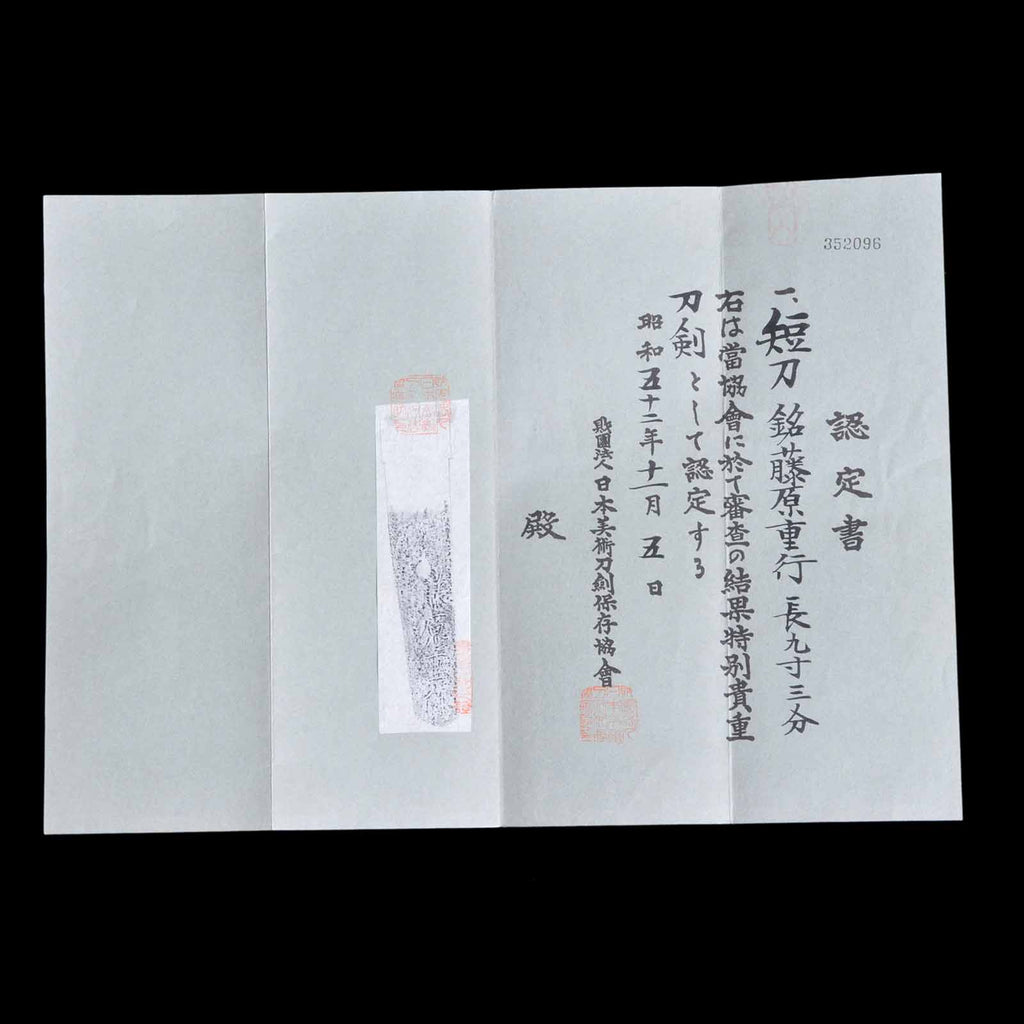 352096
認定書
一、短刀 銘藤原重行 長九寸三分
右は當協會に於て審査の結果特別貴重
刀剣として認定する
昭和五十二年十一月五日
財團法人日本美術刀劍保存協會
殿